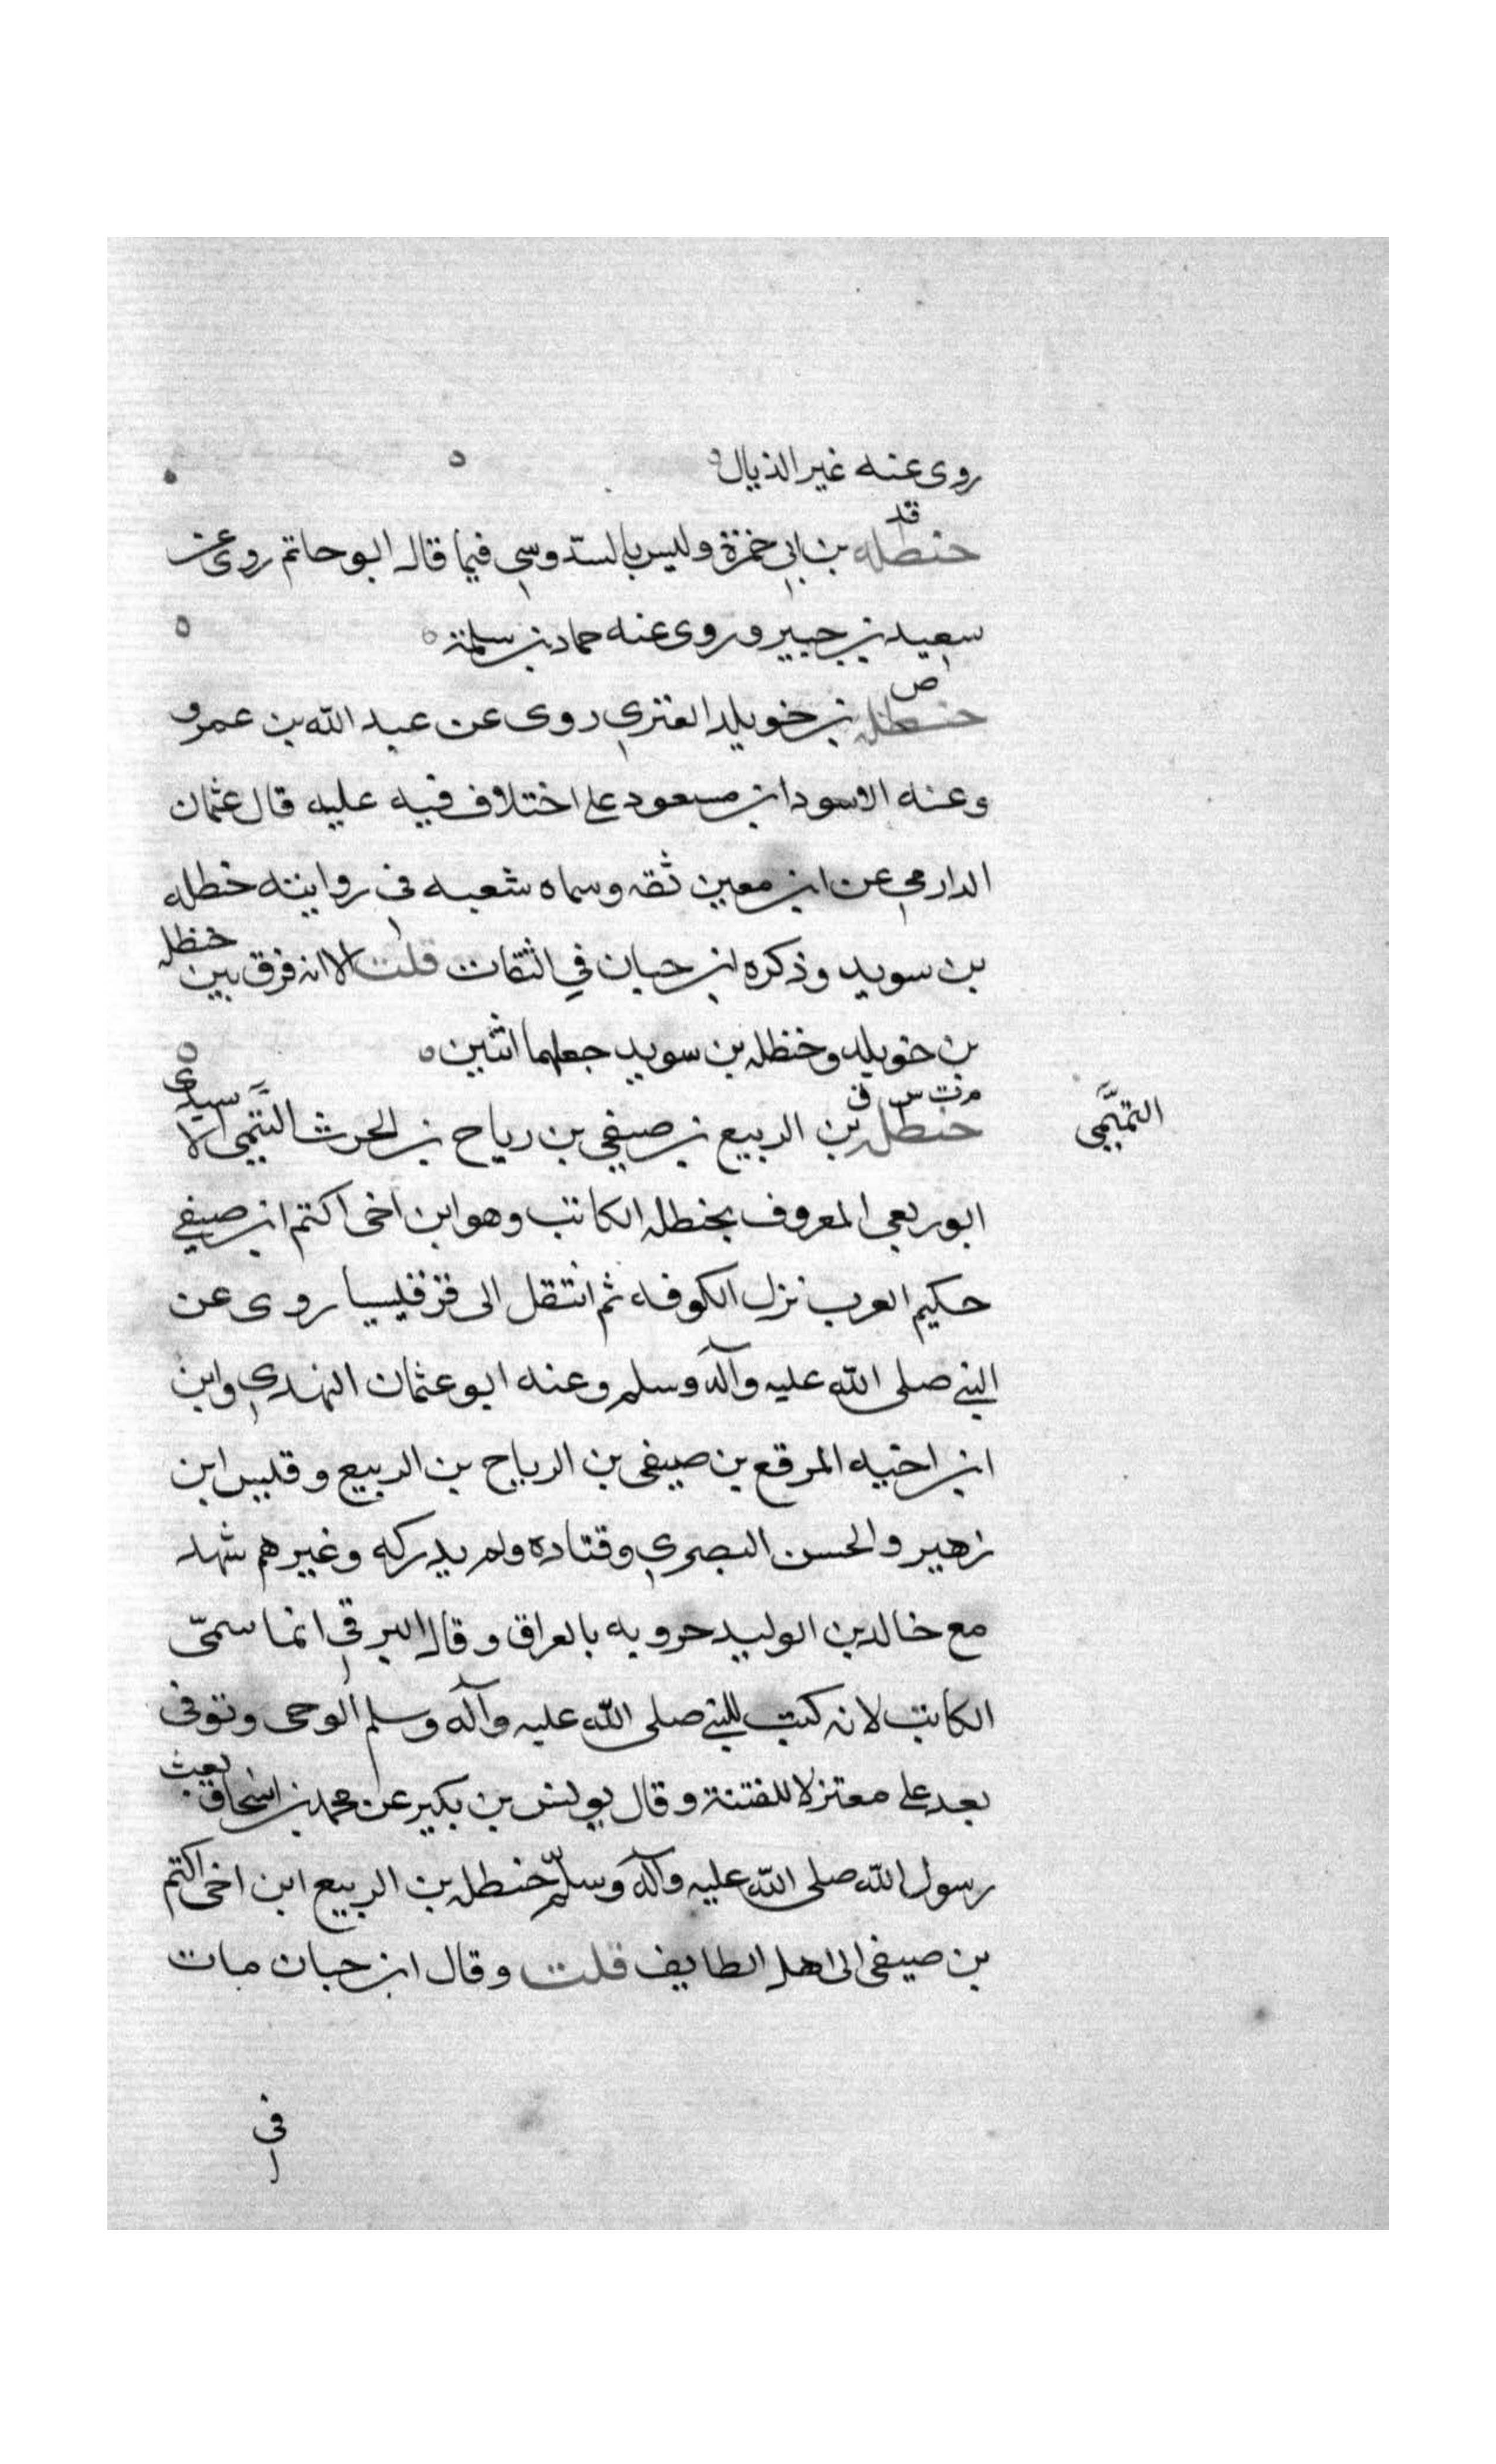 روى عنه غير الذيال
قد
حنظله بن ابى حمزة وليس بالسدوسي فيما قاله ابو حاتم روى عن
سعيد بن جبير وروى عنه حماد بن سلمة
ص
حنظله بن خويلد العنزي روى عن عبد الله بن عمرو
وعنه الاسود ابن مسعود على اختلاف فيه عليه قال عثمان
الدارمي عن ابن معين ثقه وسماه شعبه في روايته حنظله
بن سويد وذكره ابن حبان في الثقات قلت الا انه فرق بين حنظله
بن خويلد وحنظله بن سويد جعلهما اثنين
م ت س ق
حنظله بن الربيع بن صيفي بن رياح بن الحرث التميمي الاسيدي
التميمي
ابو ربعي المعروف بحنظله الكاتب وهو ابن اخي اكتم ابن صيفي
حكيم العرب نزل الكوفه ثم انتقل الى قرقيسيا روى عن
النبي صلى الله عليه وآله وسلم وعنه ابو عثمان النهدي وابن
ابن اخيه المرقع بن صيفي بن الرياح بن الربيع وقيس ابن
زهير والحسن البصري وقتاده ولم يدركه وغيرهم شهد
مع خالد بن الوليد حروبه بالعراق وقال البرقي انما سمّي
الكاتب لانه كتب للنبي صلى الله عليه وآله وسلم الوحى وتوفى
بعد علي معتزلا للفتنة وقال يونس بن بكير عن محمد بن اسحاق بعث
رسول الله صلى الله عليه وآله وسلم حنظله بن الربيع ابن اخي اكتم
بن صيفي الى اهل الطايف قلت وقال ابن حبان مات
في